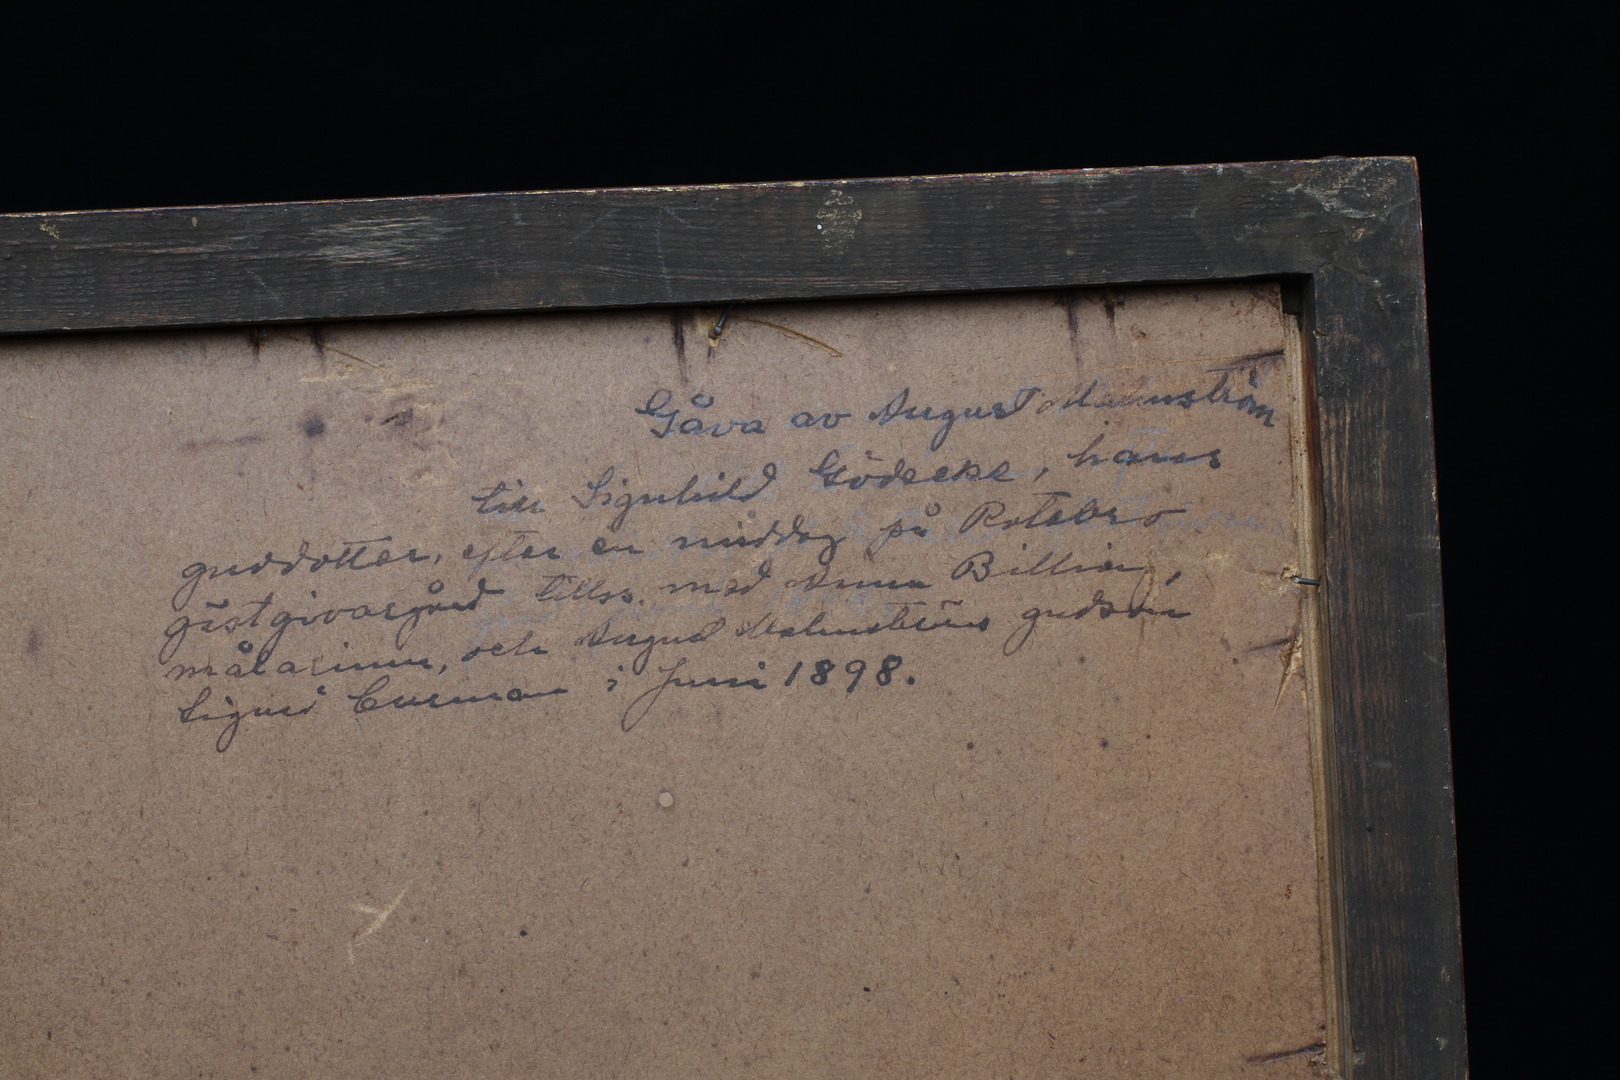 Gåva av August Malmström
till Signhild Gödecke, hans
guddotter, efter en middag på Rotebro
gästgivaregård tills. med Anna Billing,
målarinna, och August Malmströms gudson
Sigurd Curman i Juni 1898.